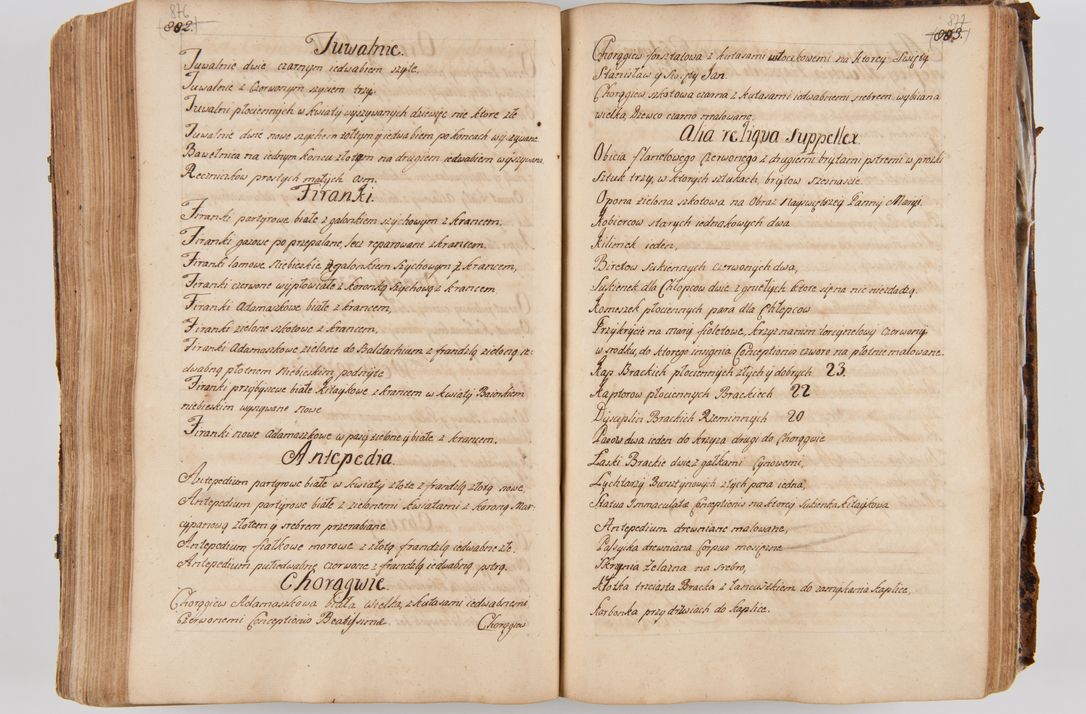 876
882.
Tuwalnie.
Tuwalnie dwie czarnym iedwabiem szyte,
Tuwalnie z Czerwonym szyciem trzy.
Tuwalni płociennych w kwiaty wyszywanych dziewięc nie ktore złe
Tuwalnie dwie nowe szychem zołtym y iedwabiem po koncach wyszywane.
Bawełnica na iednym koncu złotem na drugiem iedwabiem wyszywana,
Ręczniczkow prostych małych osm.
Firanki.
Firanki partyrowe białe z galonkiem szychowym z krancem.
Firanki gazowe po przepalane, lecz reparowane z krancem.
Firanki lamowe Niebieskie z galonkiem Szychowym z krancem,
Firanki czerwone wypłowiałe z koronką Szychową z krancem
Firanki Adamaszkowe białe z krancem,
Firanki zielone szkotowe z krancem,
Firanki Adamaszkowe zielone do Baldachium z frandzlą zieloną ie:
dwabną płotnem Niebieskim podszyte
Firanki przybyszowe białe kitaykowe z krancem w kwiaty
niebieskim wyszywane nowe
Firanki nowe Adamaszkowe w pasy zielone y białe z krancem.
Antepedia.
Antepedium partyrowe białe w kwiaty złote z frandzlą złotą nowe,
Antepedium partyrowe białe z zielonemi kwiatami z koroną Mar
cypanową złotem y srebrem przerabiane
Antepedium fiałkowe morowe z złotą frandzlą iedwabne złe.
Antepedium pułiedwabne czerwone z frandzlą iedwabną pstrą.
Chorągwie.
Chorągiew Adamaszkowa biała wielka, z kutasami iedwabnemi
Czerwonemi Conceptionis Beatissimæ
Chorągiew
877
883.
Chorągiew forsztatowa z kutasami włoczkowemi na ktorey Swięty
Stanisław y Swięty Jan.
Chorągiew szkotowa czarna z kutasami iedwabnemi srebrem wybiana
wielka, Drzewco czarno malowane,
Alia religva Suppellex.
Obicia flanelowego Czerwonego z drugiemi brytami pstremi w prązki
Sztuk trzy, w ktorych sztukach, brytow szesnascie.
Opona zielona szkotowa na Obraz Nayswiętrzey Panny Maryi
Kobiercow starych iednakowych dwa
Kilimek ieden,
Biretow Sukiennych Czerwonych dwa,
Sukienek dla Chłopcow dwie z gniełych ktore się na nic niezdadzą
Komeszek płociennych para dla Chłopcow
Przykrycie na mary fioletowe, krzyz na nim tercynelowy Czerwony
w srodku, do ktorego insignia Conceptionis czworo na płotnie malowane.
Kap Brackich płociennych złych y dobrych 23.
Kapturow płociennych Brackiech 22
Dyscyplin Brackich Rzeminnych 20
Pasow dwa ieden do krzyza drugi do Chorągwie
Laski Brackie dwie z gałkami Cynowemi,
Lychtarzy Bursztynowych złych para iedna,
Statua Immaculatæ Conceptionis na ktorey Sukienka kitaykowa
Antepedium drewniane malowane,
Passyika drewniana Corpus mosięzne
Skrzynia zelazna na srebro,
Kłotka trzciasta Bracka z łancuszkiem do zamykania kaplice,
Karbonka przy drzwiach do kaplice.